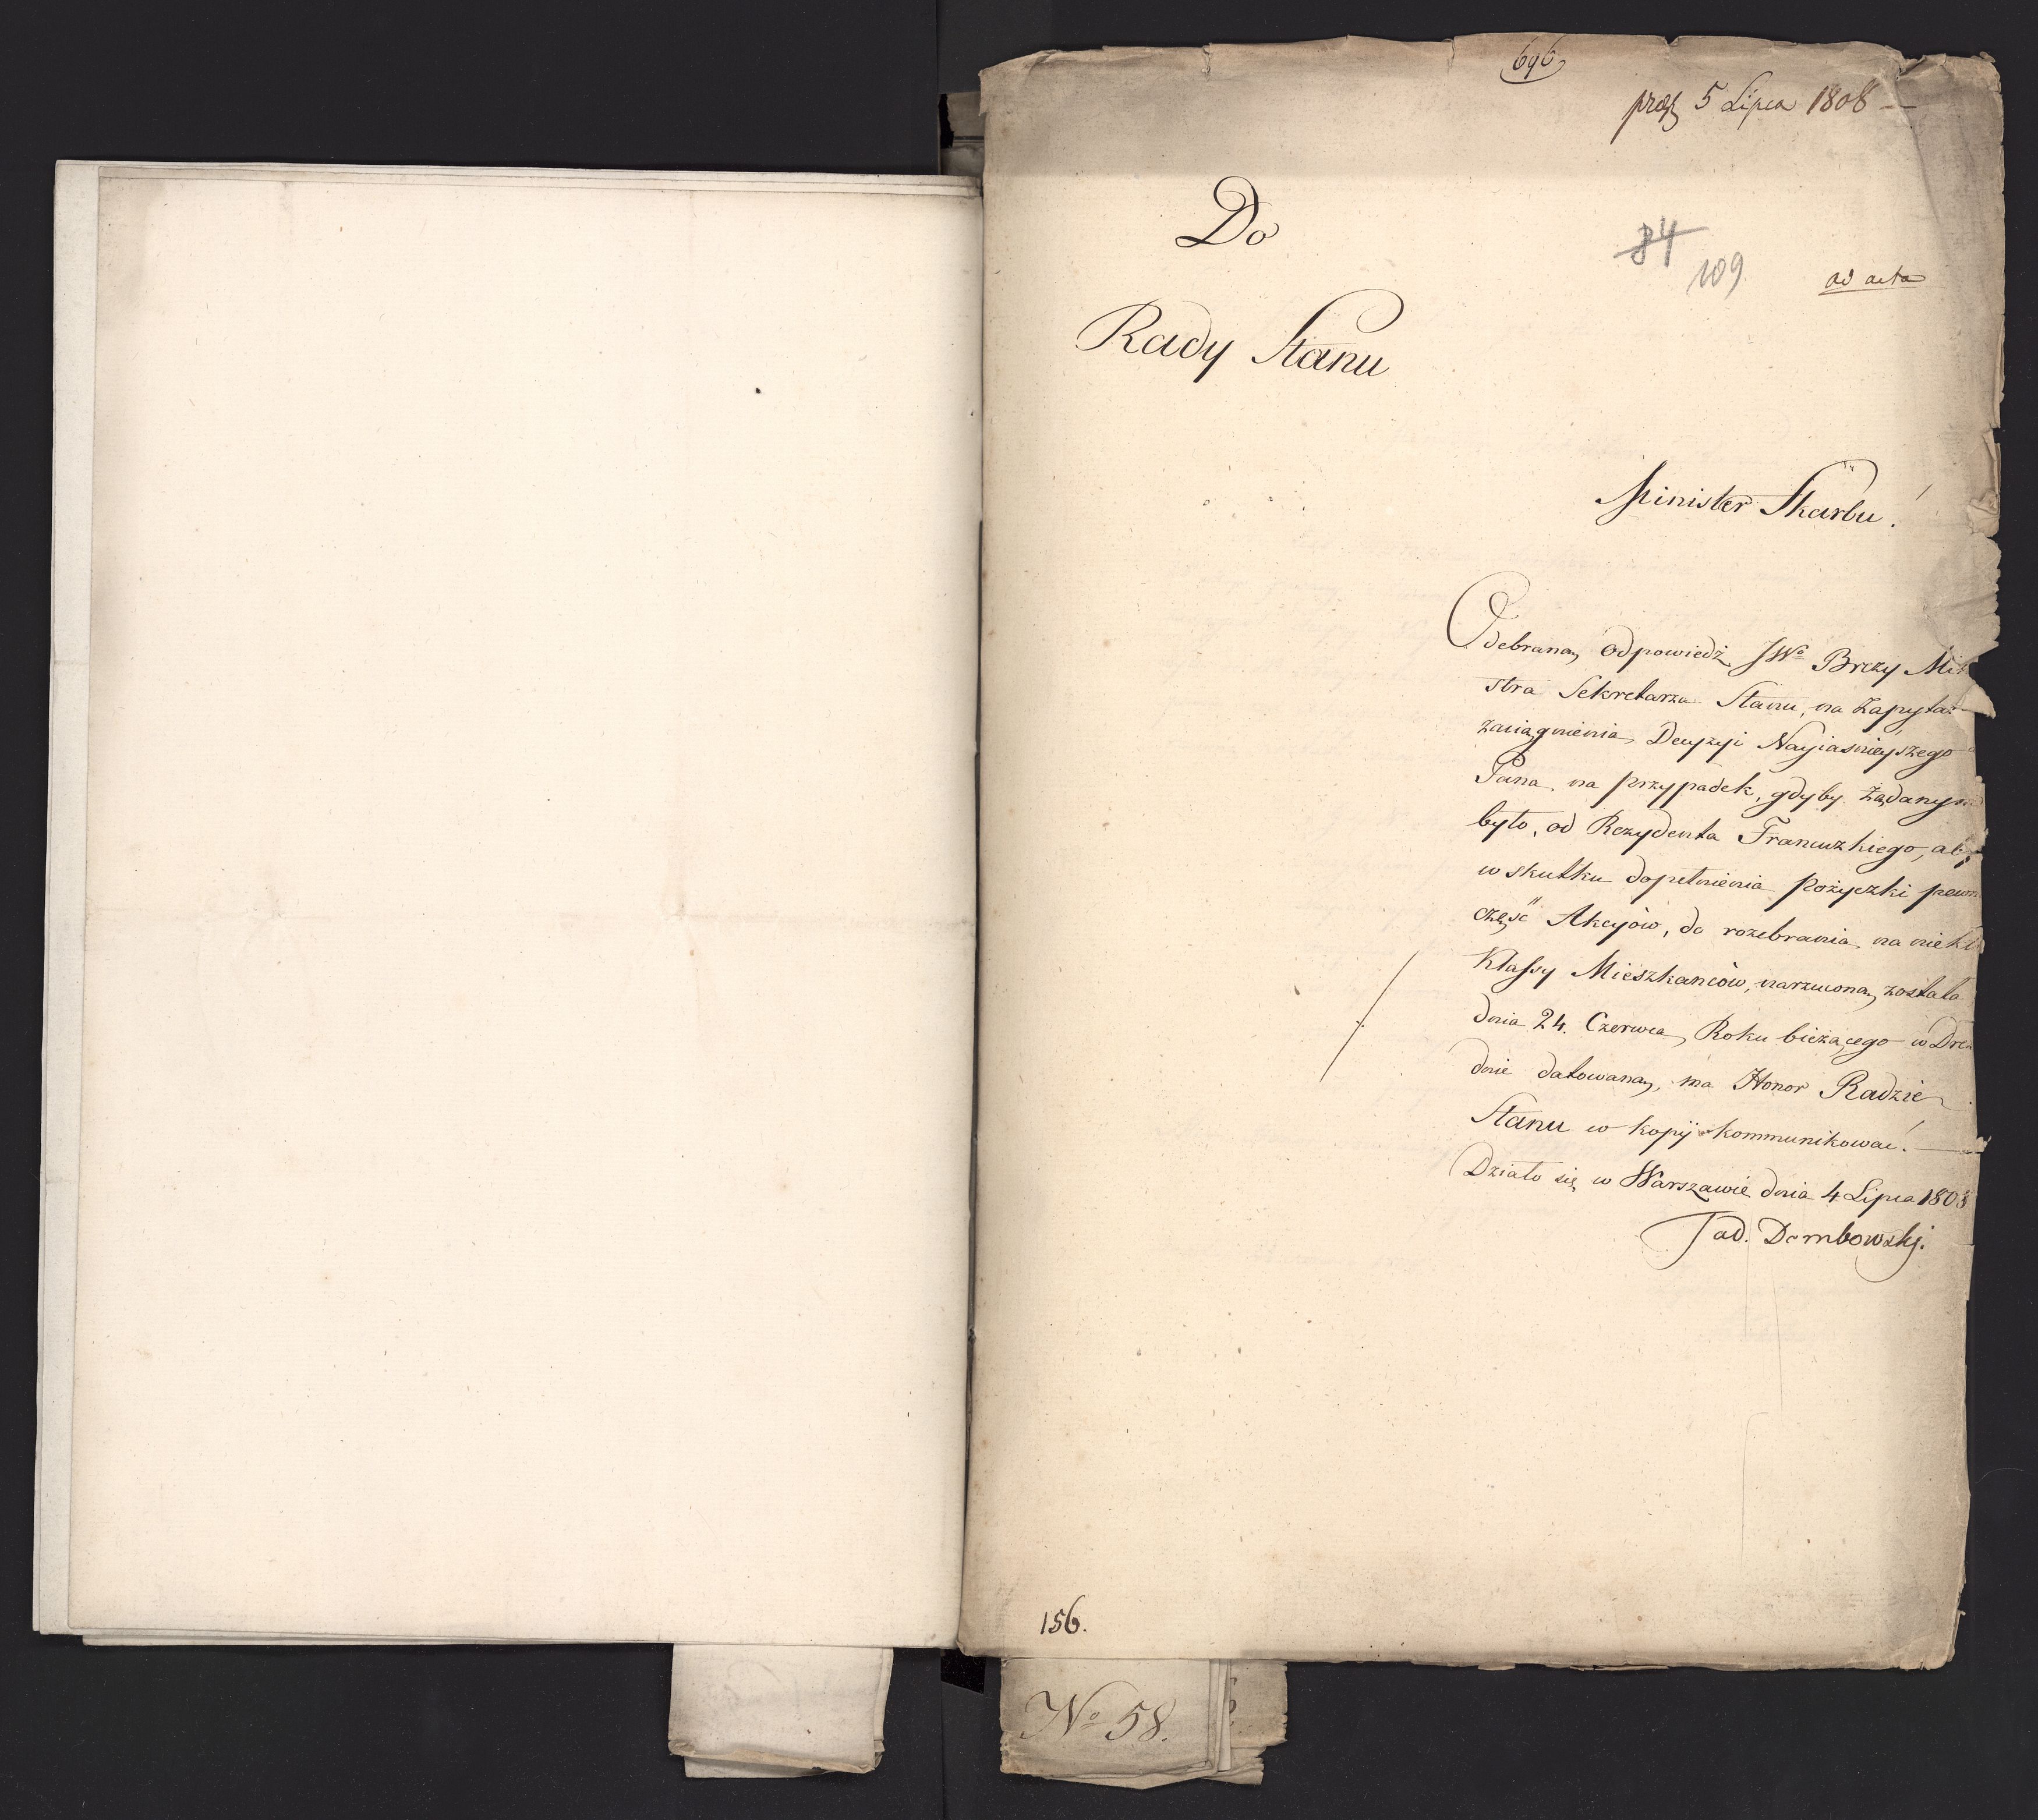 696
5 Lipca 1808 —
Do
84
109
ad acta
Rady Stanu
Minister Skarbu.
Odebraną odpowiedź JWo Brezy Mi
stra Sekretarza Stanu, na Zapyta
zaciągnienia Decyzyi Nayiaśnieyszego
Pana, na przypadek, gdyby żądanym
było, od Rezydenta Francuzkiego, aby
w skutku dopełnienia Pożyczki pewn
część Akcyów, do rozebrania na niekt
Klassy Mieszkańców, narzuconą została
dnia 24. Czerwca Roku bieżącego w Dre
dnie datowaną, ma Honor Radzie
Stanu w kopij kommunikować. —
Działo się w Warszawie dnia 4 Lipca 1808
Tad. Dembowski.
156.
No 58.